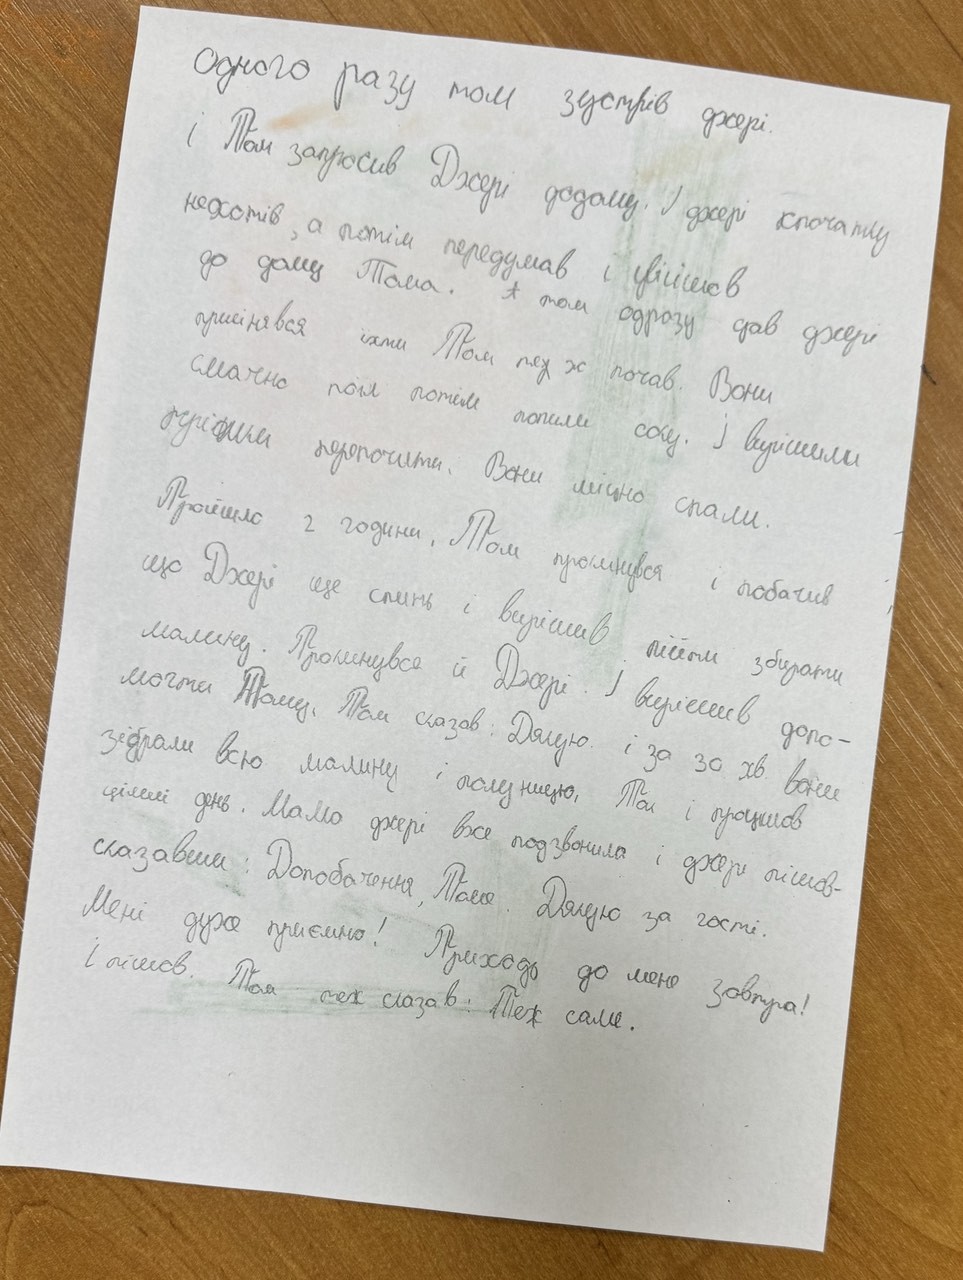 Одного разу том зустрів джері.
і Том запросив Джері додому. І джері спочатку
нехотів, а потім передумав і увійшов
до дому Тома. том одразу дав джері
їхти Том теж почав. Вони
смачно поїли потім попили соку. І вирішили
перепочити. Вони міцно спали.
Пройшло 2 години, Том прокинувся і побачив
що Джері ще спить і вирішив піти збирати
малину. Прокинувся й Джері. І вирішив допо-
могти Тому. Том сказав: Дякую. і за 30 хв вони
зібрали всю малину і полуницю, Так і пройшов
цілий день. Мамо джері вже подзвонила і джері пішов-
сказавши: Допобачення, Томе. Дякую за гості.
Мені дуже приємно! Приходь до мене завтра!
і пішов. Том теж сказав: Теж саме.